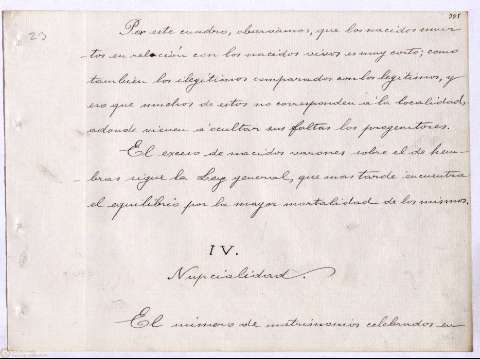 23
Por este cuadro, observamos, que los nacidos muer-
tos en relación con los nacidos vivos es muy corto; como
tambien los ilegitimos comparados con los legitimos, y
eso que muchos de estos no corresponden á la localidad,
adonde vienen a ocultar sus faltas los progenitores.
El exceso de nacidos varones sobre el de hem-
bras sigue la Ley general, que mas tarde encuentra
el equilibrio por la mayor mortalidad de los mismos.
IV.
Nupcialidad.
El número de matrimonios celebrados en